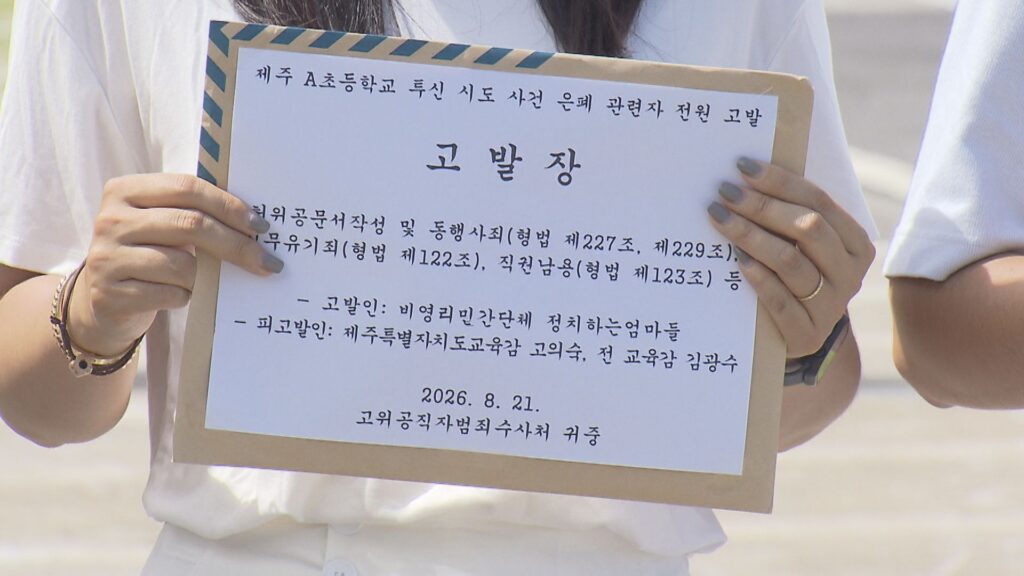 제주 A초등학교 투신 시도 사건 은폐 관련자 전원 고발
고 발 장
허위공문서작성 및 동행사죄(형법 제227조, 제229조),
직무유기죄(형법 제122조), 직권남용(형법 제123조) 등
- 고발인: 비영리민간단체 정치하는엄마들
- 피고발인: 제주특별자치도교육감 고의숙, 전 교육감 김광수
2026. 8. 21.
고위공직자범죄수사처 귀중